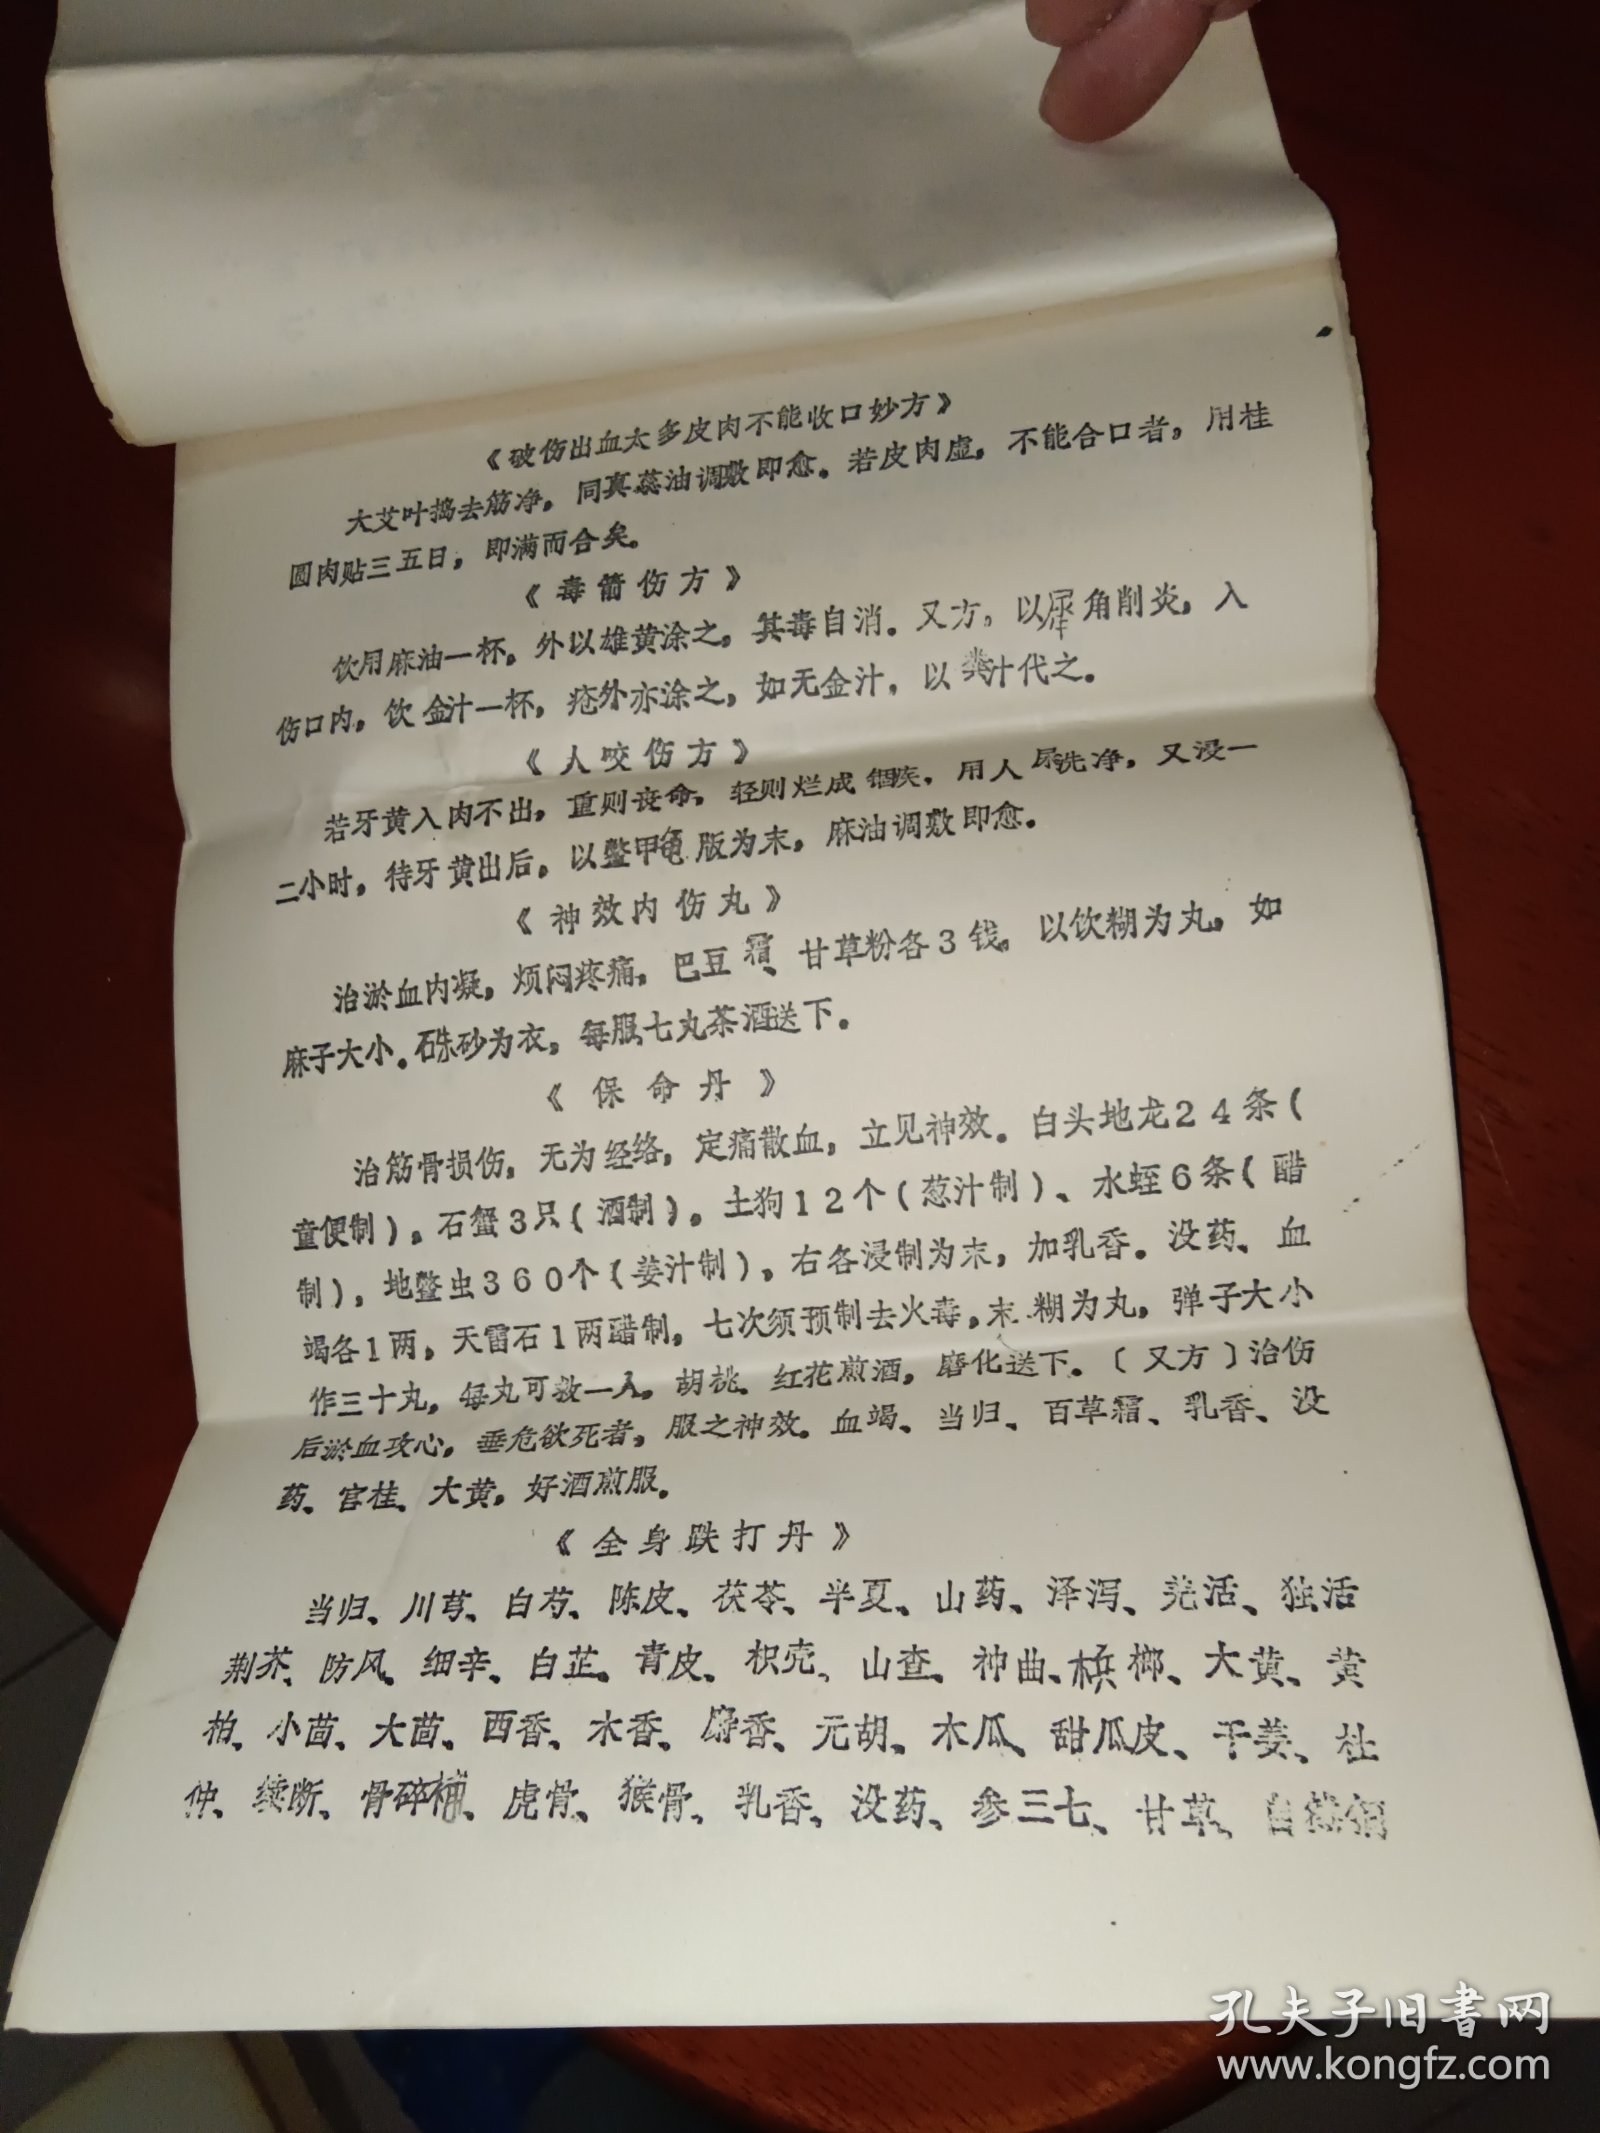 《破伤出血太多皮肉不能收口妙方》
大艾叶捣去筋净，同真蕊油调敷即愈。若皮肉虚，不能合口者，用桂
圆肉贴三五日，即满而合矣。
《毒箭伤方》
饮用麻油一杯。外以雄黄涂之，其毒自消。又方，以犀角削炎，入
伤口内，饮金汁一杯，疮外亦涂之，如无金汁，以粪汁代之。
《人咬伤方》
若牙黄入肉不出，重则丧命，轻则烂成锢疾，用人尿洗净，又浸一
二小时，待牙黄出后。以鳖甲龟版为末，麻油调敷即愈。
《神效内伤丸》
治淤血内凝，烦闷疼痛，巴豆霜、甘草粉各3钱，以饮糊为丸，如
麻子大小。硃砂为衣，每服七丸茶酒送下。
《保命丹》
治筋骨损伤，无为经络，定痛散血，立见神效。白头地龙24条（
童便制）。石蟹3只（酒制）。土狗12个（葱汁制）、水蛭6条（醋
制），地鳖虫360个（姜汁制），右各浸制为末，加乳香。没药、血
竭各1两，天雷石1两醋制，七次须预制去火毒，末糊为丸，弹子大小
作三十丸，每丸可救一人，胡桃、红花煎酒，磨化送下。〔又方〕治伤
后淤血攻心，垂危欲死者，服之神效。血竭、当归、百草霜、乳香、没
药、官桂、大黄，好酒煎服。
《全身跌打丹》
当归、川芎、白芍、陈皮、茯苓、半夏、山药、泽泻、羌活、独活
荆芥、防风、细辛、白芷、青皮、枳壳、山查、神曲、槟榔、大黄、黄
柏、小茴、大茴、西香、木香、麝香、元胡、木瓜、甜瓜皮、干姜、杜
仲、续断、骨碎補、虎骨、猴骨、乳香、没药、参三七、甘草、自然铜
孔夫子旧书网
www.kongfz.com